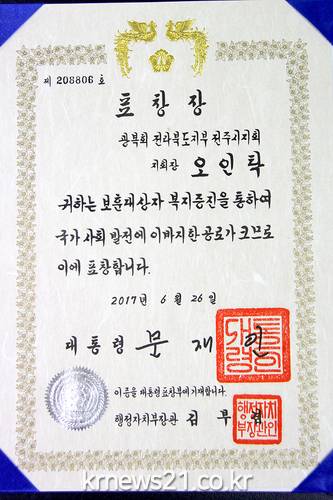 제 208806 호
표 창 장
광복회 전라북도지부 전주시지회
지회장 오 인 탁
귀하는 보훈대상자 복지증진을 통하여
국가 사회 발전에 이바지한 공로가 크므로
이에 표창합니다.
2017년 6월 26일
대통령 문 재 인
이 증을 대통령표창부에 기재합니다.
행정자치부장관 김 부 겸
krnews21.co.kr